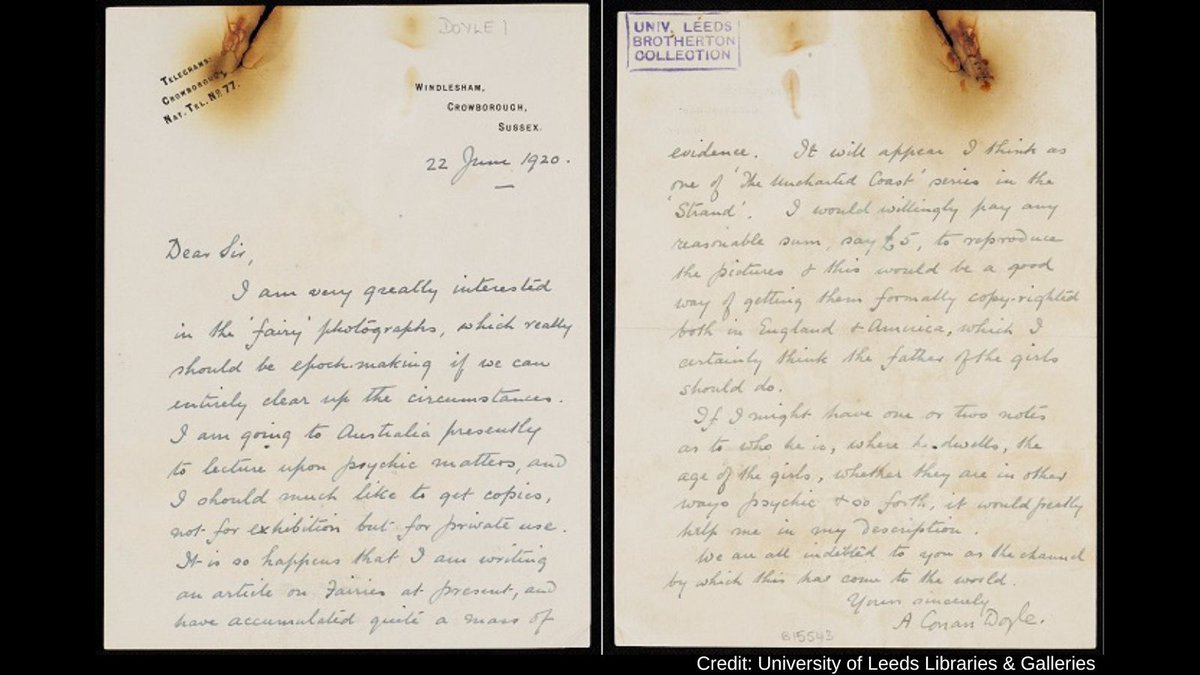 DOYLE 1
TELEGRAMS:
CROWBOROUGH.
NAT. TEL. Nº 77.
WINDLESHAM,
CROWBOROUGH,
SUSSEX.
22 June 1920.
Dear Sir,
I am very greatly interested
in the 'fairy' photographs, which really
should be epoch-making if we can
entirely clear up the circumstances.
I am going to Australia presently
to lecture upon psychic matters, and
I should much like to get copies,
not for exhibition but for private use.
It is so happens that I am writing
an article on Fairies at present, and
have accumulated quite a mass of
UNIV. LEEDS
BROTHERTON
COLLECTION
evidence. It will appear I think as
one of 'The Uncharted Coast' series in the
'Strand'. I would willingly pay any
reasonable sum, say £5, to reproduce
the pictures & this would be a good
way of getting them formally copy-righted
both in England & America, which I
certainly think the father of the girls
should do.
If I might have one or two notes
as to who he is, where he dwells, the
age of the girls, whether they are in other
ways psychic & so forth, it would greatly
help me in my description.
We are all indebted to you as the channel
by which this has come to the world.
Yours sincerely
A Conan Doyle.
B15543
Credit: University of Leeds Libraries & Galleries